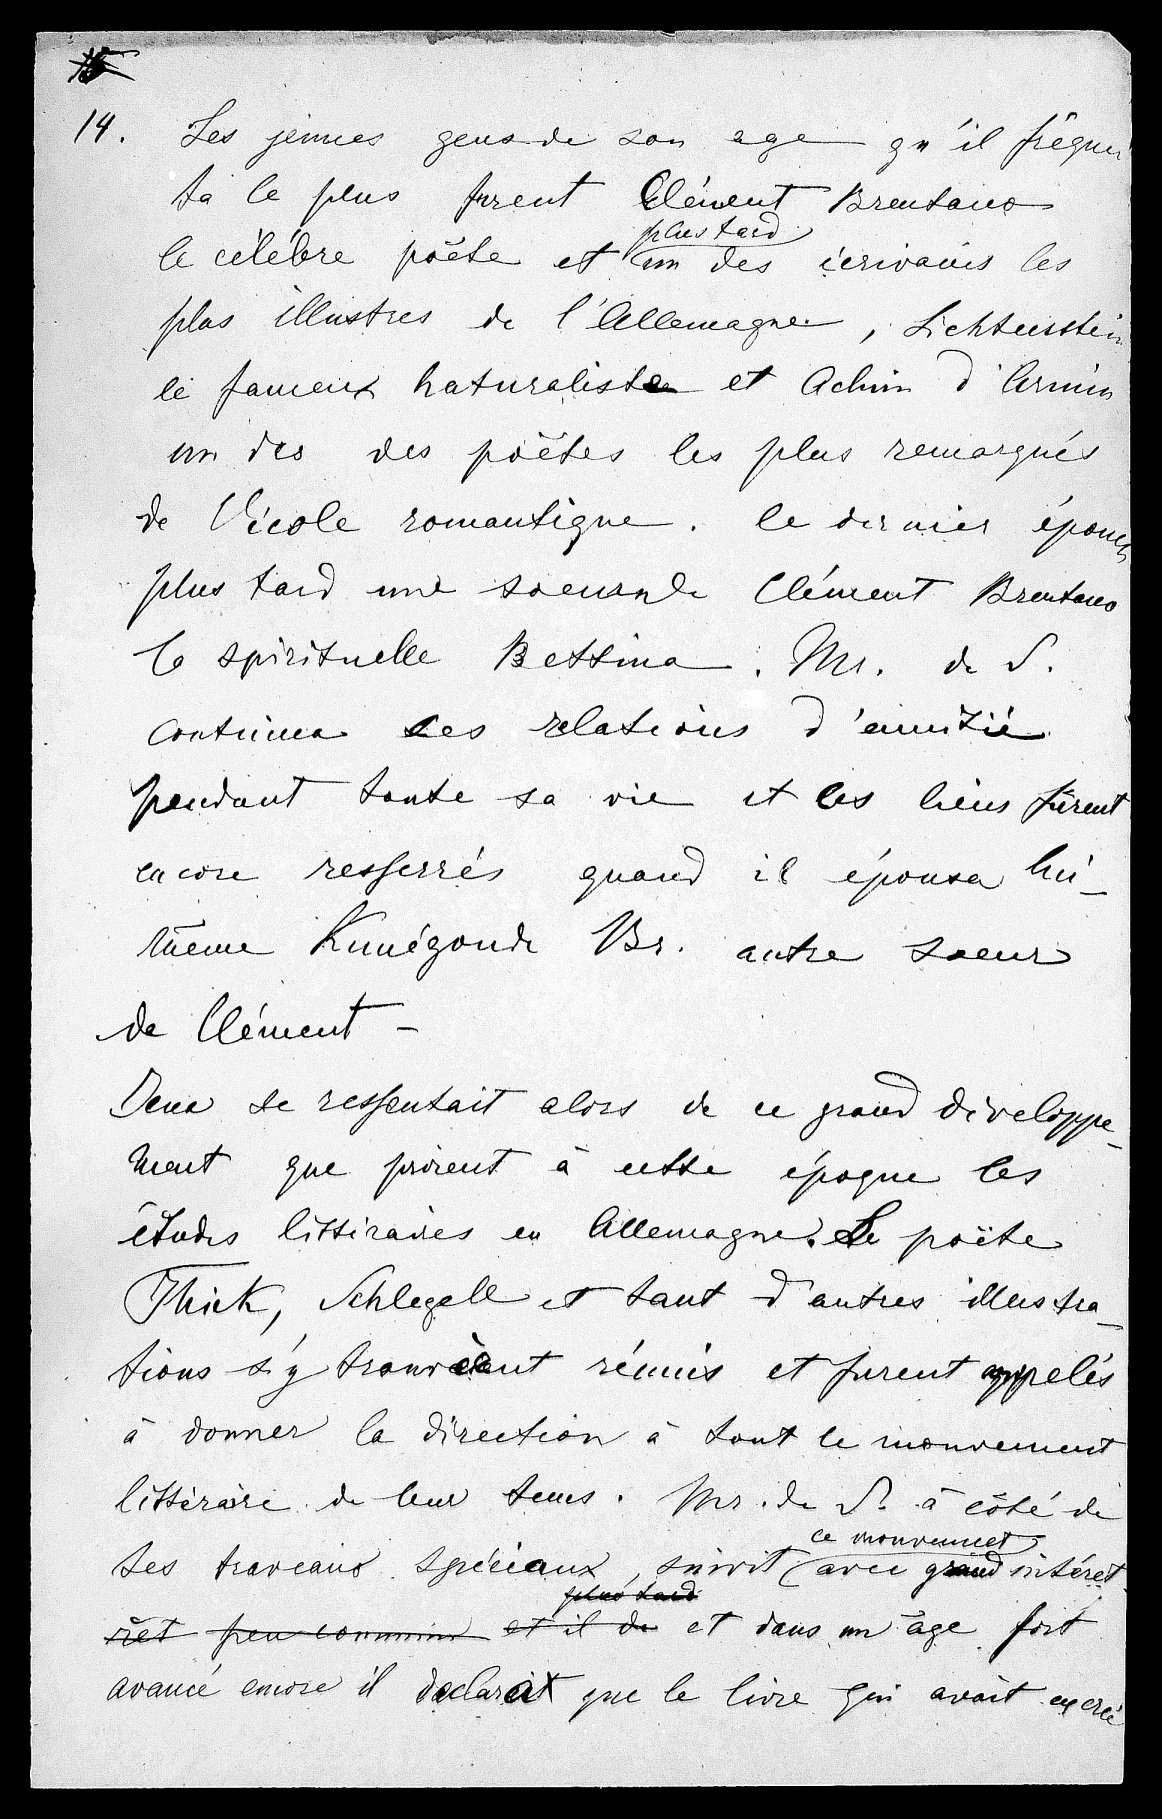 15
14. Les jeunes gens de son age qu'il fréquen
ta le plus furent Clément Brentano
plus tard
le célébre poëte et un des écrivains les
plus illustres de l'Allemagne, Lichtenstein
le fameux naturaliste et Achim d'Arnim
un des des poëtes les plus remarqués
de l'école romantique. le dernier épousa
plus tard une soeur de Clément Brentano
la spirituelle Bettina. Mr. de S.
continua ses relations d'amitié
pendant toute sa vie et les liens furent
encore resserrés quand il épousa lui-
même Kunégonde Br. autre soeur
de Clément -
Jena se ressentait alors de ce grand developpe-
ment que prirent à cette époque les
études littéraires en Allemagne. Le poëte
Thiek, Schlegell et tant d'autres illustra-
tions s'y trouvèrent réunis et furent appelés
à donner la direction à tout le mouvement
littéraire de leur tems. Mr. de S. à côté de
ce mouvement
ses travaux spéciaux, suivit avec grand intéret
plus tard
rêt peu commun et il de et dans un âge fort
avancé encore il declarait que le livre qui avait exercé